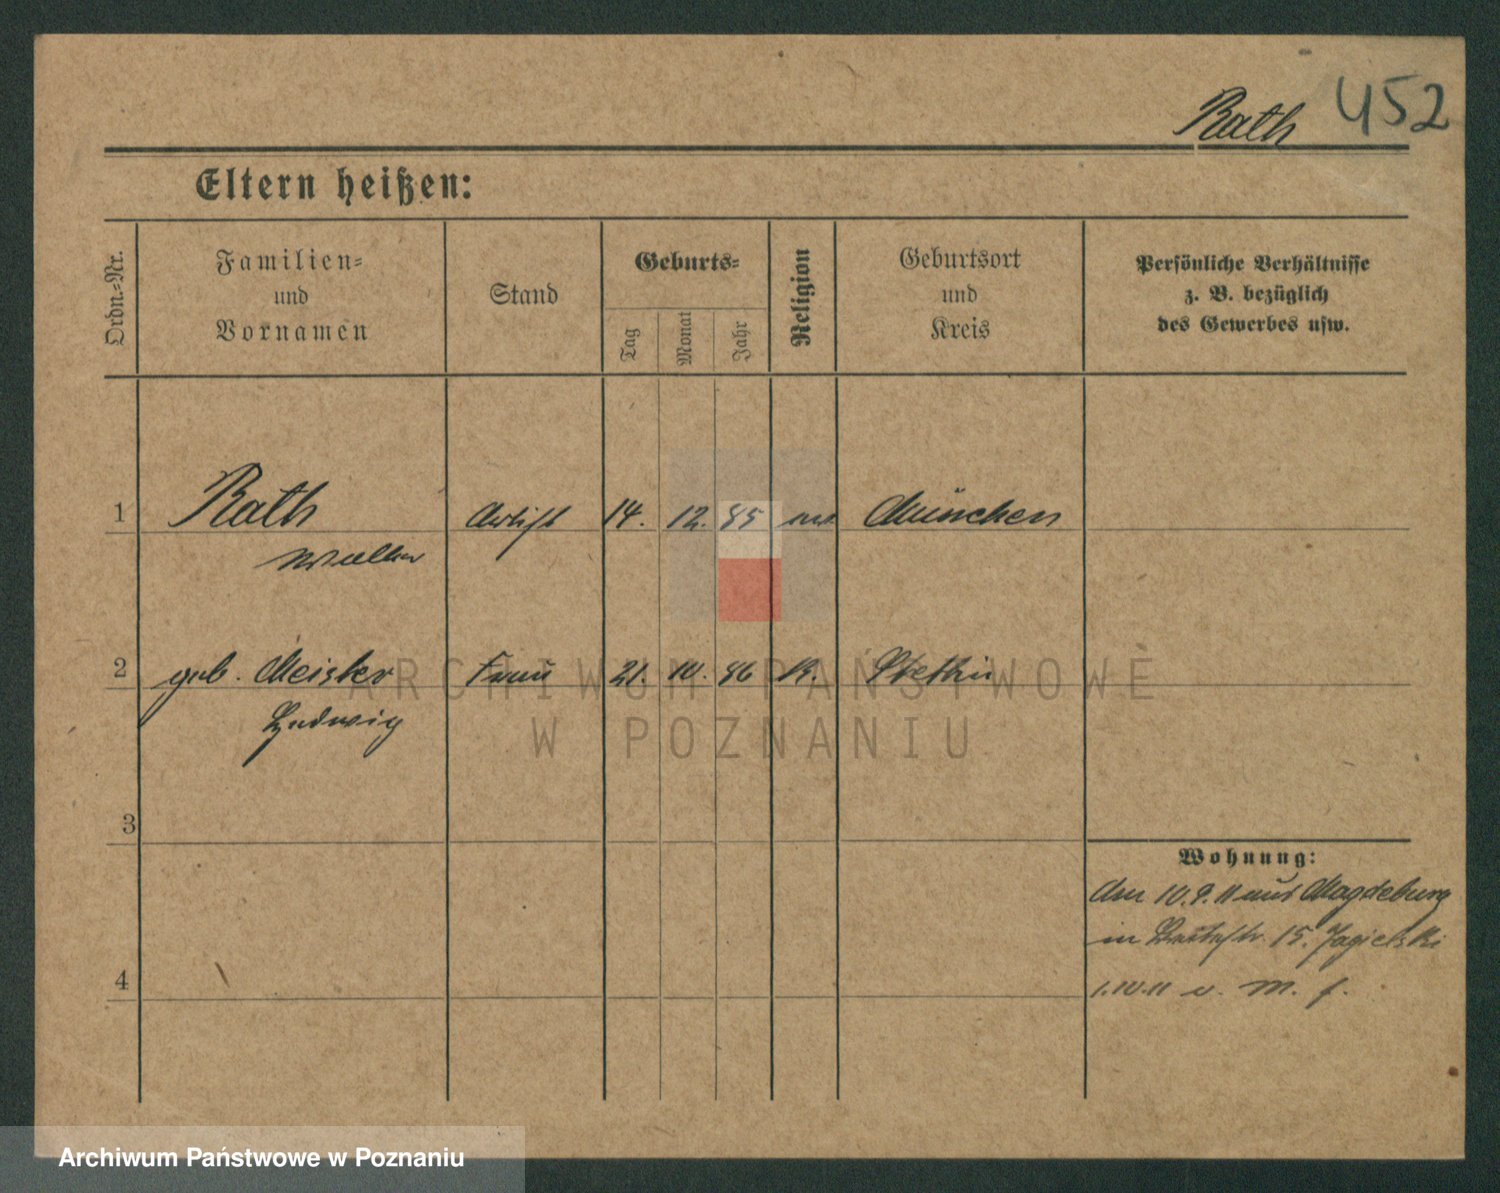 Rath 452
Eltern heißen:
Ordn.-Nr.
Familien-
und
Vornamen
Stand
Geburts-
Tag
Monat
Jahr
Religion
Geburtsort
und
Kreis
Persönliche Verhältnisse
z. B. bezüglich
des Gewerbes usw.
1 Rath Artist 14. 12. 85 München
2 geb. Meister Frau 21. 10. 86 K. Stettin
Ludwig
3
4
Wohnung:
10.9.11 aus Magdeburg
in 15. Jagielski
1.10.11 v. M. f.
ARCHIWUM PAŃSTWOWE
W POZNANIU
Archiwum Państwowe w Poznaniu